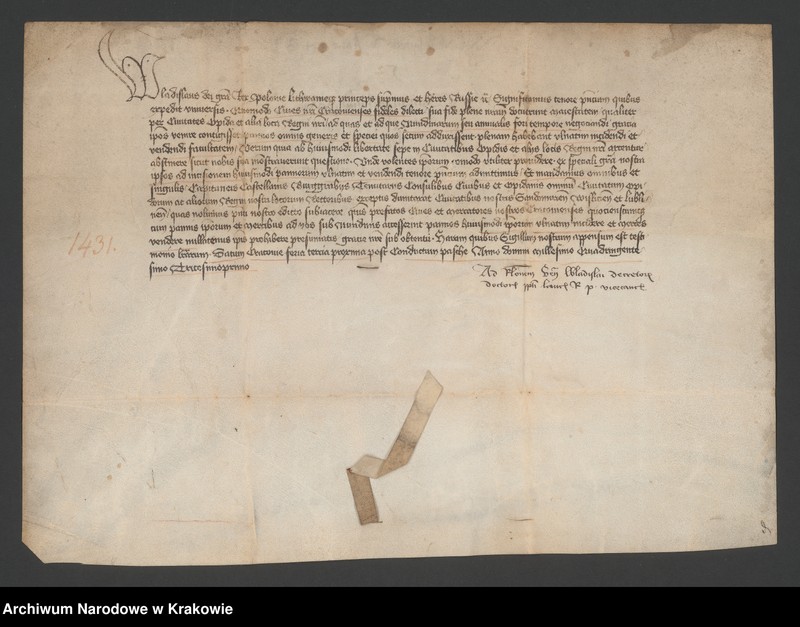 Wladislaus dei grā Rex Polonie Lithwanieqz princeps supmus et heres Russie Significamus tenore pntium quibus
expedit vniversis Quomodo Cives nri Cracovienses fideles dilecti sua fide plena nram docuerunt maiestatem qualiter
per Civitates Opida et alia loca Regni nri ad quas et ad que Nundinarum seu annualis fori tempore negociandi gracia
ipos venire contigisset pannos omnis generis et speciei quos secum adduxissent plenam habebant vlnatim incidendi et
vendendi facultatem Verum quia ab huiusmodi libertate sepe in Civitatibus Opidis et aliis locis Regni nri
abstinere sicut nobis sua monstraverunt questione Vnde volentes ipsorum comodo vtiliter providere ex speciali grā nostra
ipsos ad incisionem huiusmodi pannorum vlnatim et vendendi tenore pntium admittimus Et mandamus omnibus et
singulis Capitaneis Castellanis Burggrabiis Tenutariis Consulibus Civibus et Opidanis omnium Civitatum Opi
dorum ac aliorum Regni nostri locorum Rectoribus exceptis dumtaxat Civitatibus nostris Sandomiriens Wislicien et Lubli
nen quas nolumus pnti nostro edicto subiacere qūs prefatos Cives et mercatores nostros Cracovienses quocienscunqz
cum pannis ipsorum et mercibus ad vos sub Nundinis accesserint pannos huiusmodi ipsorum vlnatim incidere et merces
vendere nullatenus ipis prohibere presumatis gracie nre sub obtentu Harum quibus Sigillum nostrum appensum est testi
monio lrarum Datum Cracovie feria tercia proxima post Conductum Pasche Anno domini Millesimo Quadringente
simo Tricesimoprimo
Ad Rlonem Wladislai de
decretorum doctoris R p vicecancell
1431.
Archiwum Narodowe w Krakowie